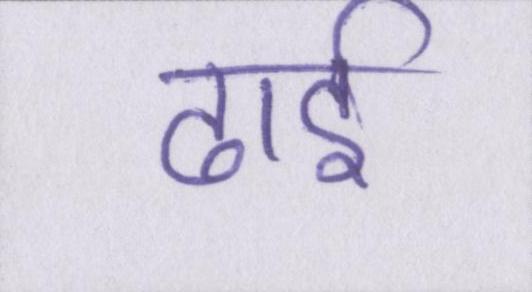 ढाई